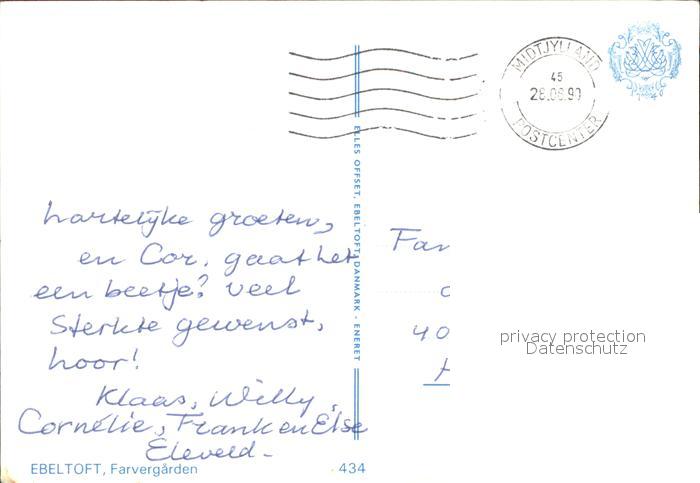 MIDTJYLLAND
45
28.08.90
POSTCENTER
ELLES OFFSET, EBELTOFT, DANMARK - ENERET
hartelijke groeten,
en Cor. gaat het
een beetje? veel
sterkte gewenst,
hoor!
Klaas, Willy,
Cornélie, Frank en Else
Eleveld -
Fam
40
privacy protection
Datenschutz
EBELTOFT, Farvergården
434